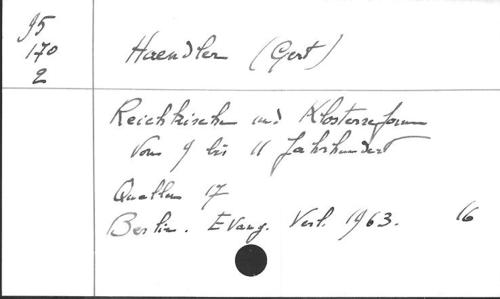 95
170
2
Haendler (Gert)
Reichkirche und Klosterreform
Vom 9 bis 11 Jahrhundert
Quellen 17
Berlin. Evang. Verl. 1963. 16